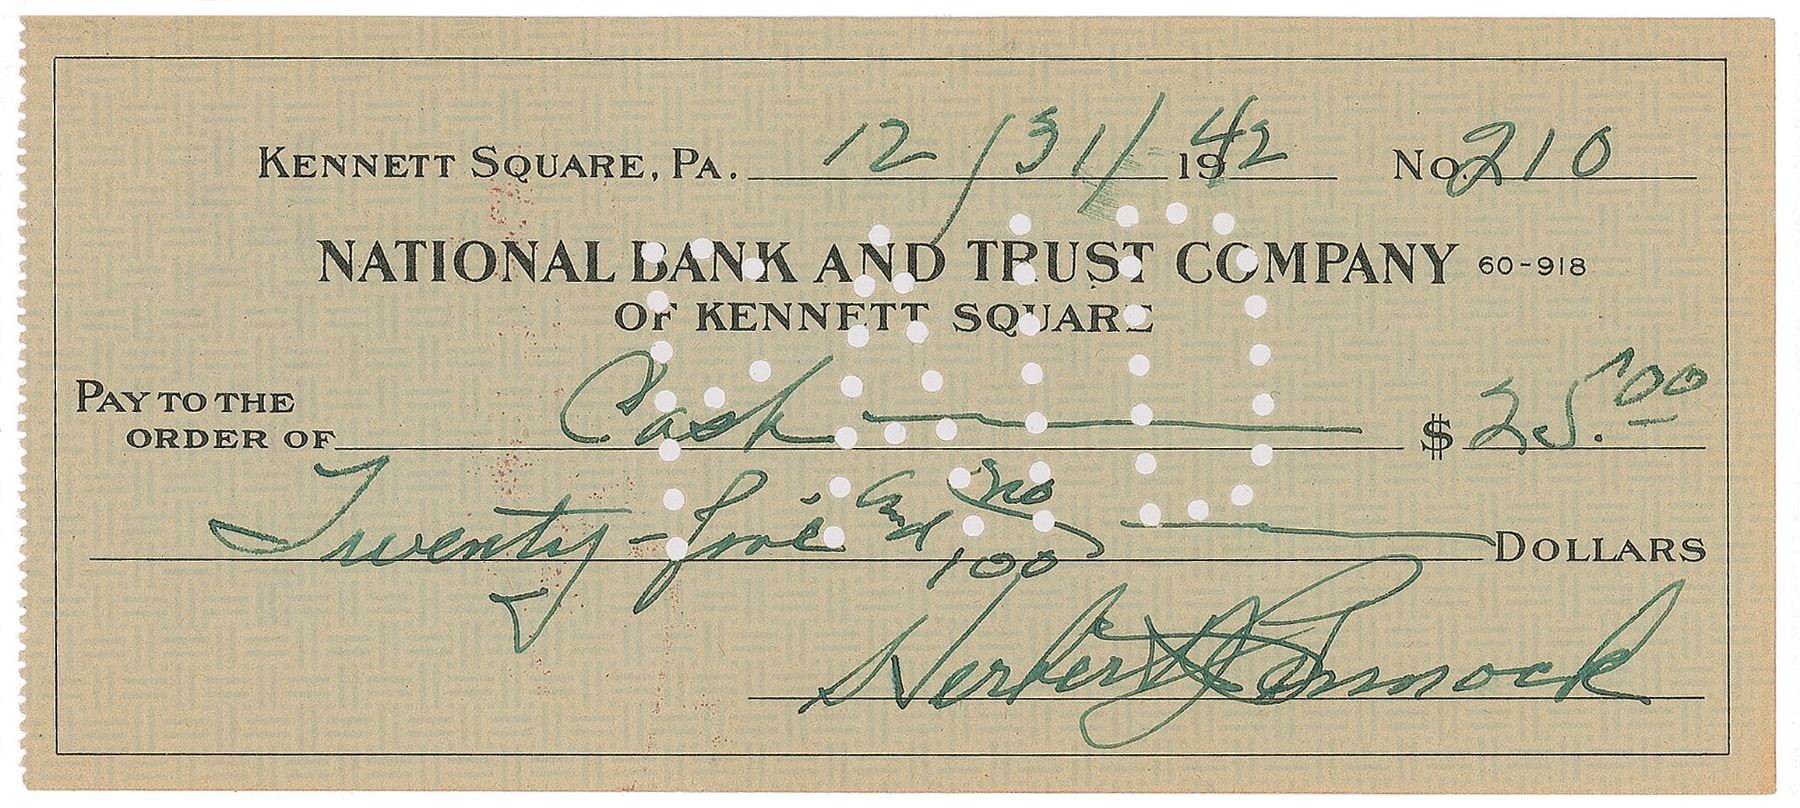 KENNETT SQUARE, PA. 12/31/ 1942 No. 210
NATIONAL BANK AND TRUST COMPANY 60-918
OF KENNETT SQUARE
PAY TO THE
ORDER OF Cash $ 25.00
Twenty-five and no/100 DOLLARS
Herbert J. Pennock
PAID